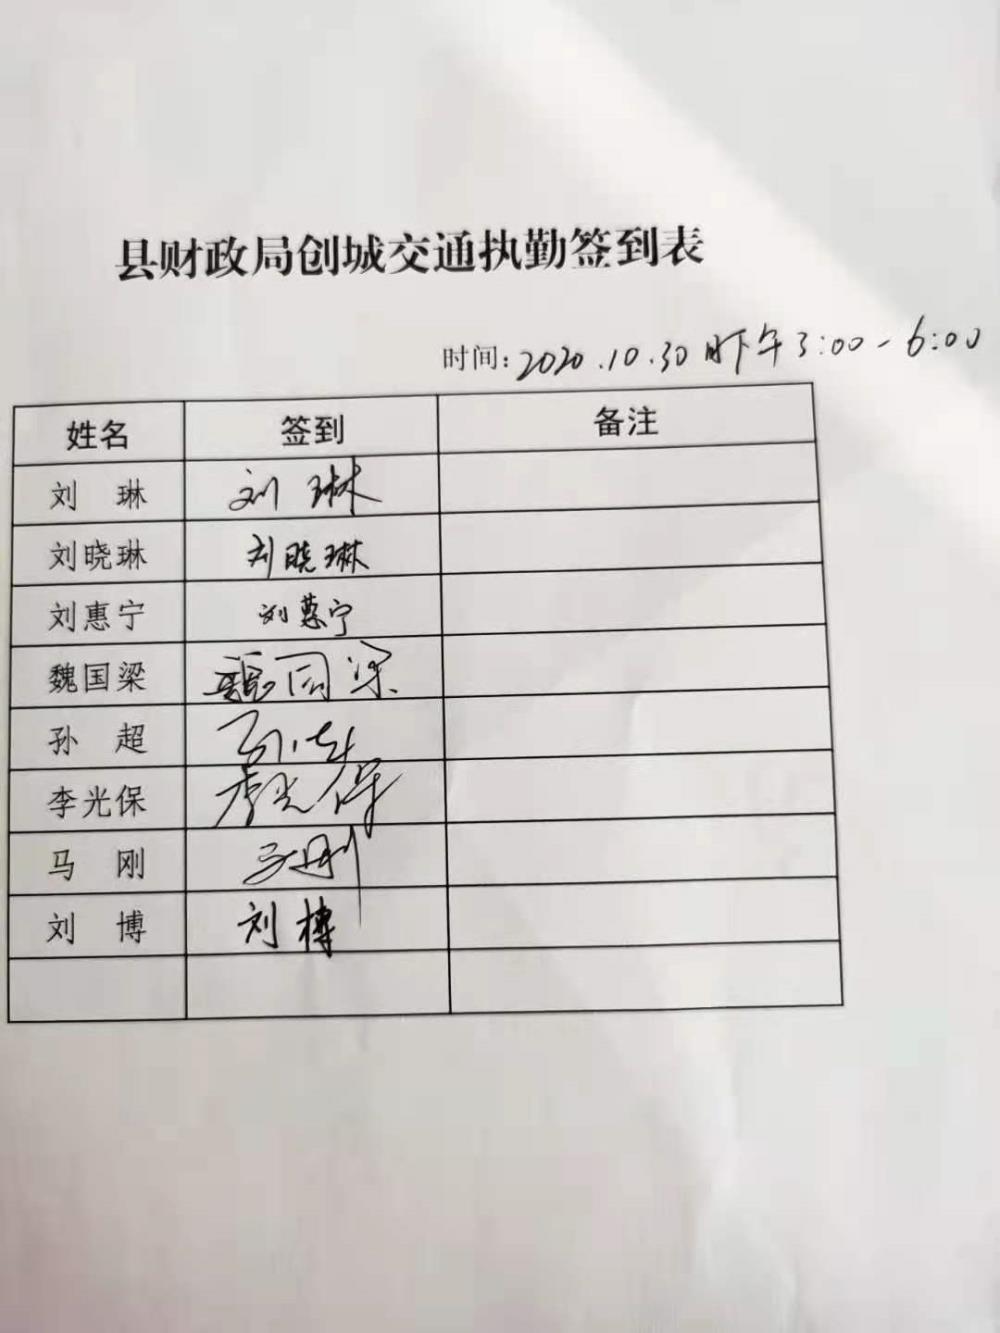 县财政局创城交通执勤签到表
时间：2020.10.30 下午3:00-6:00
姓名 签到 备注
刘 琳 刘琳
刘晓琳 刘晓琳
刘惠宁 刘慧宁
魏国梁 魏国梁
孙 超 孙超
李光保 李光保
马 刚 马刚
刘 博 刘博